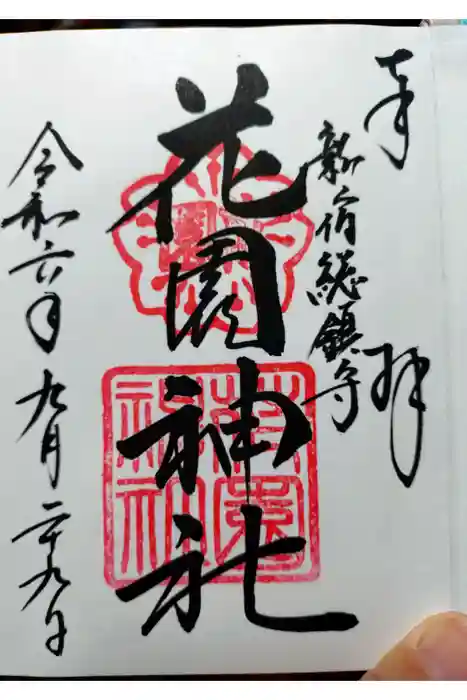 奉拝
新宿総鎮守
花園神社
花園神社
令和六年九月二十九日